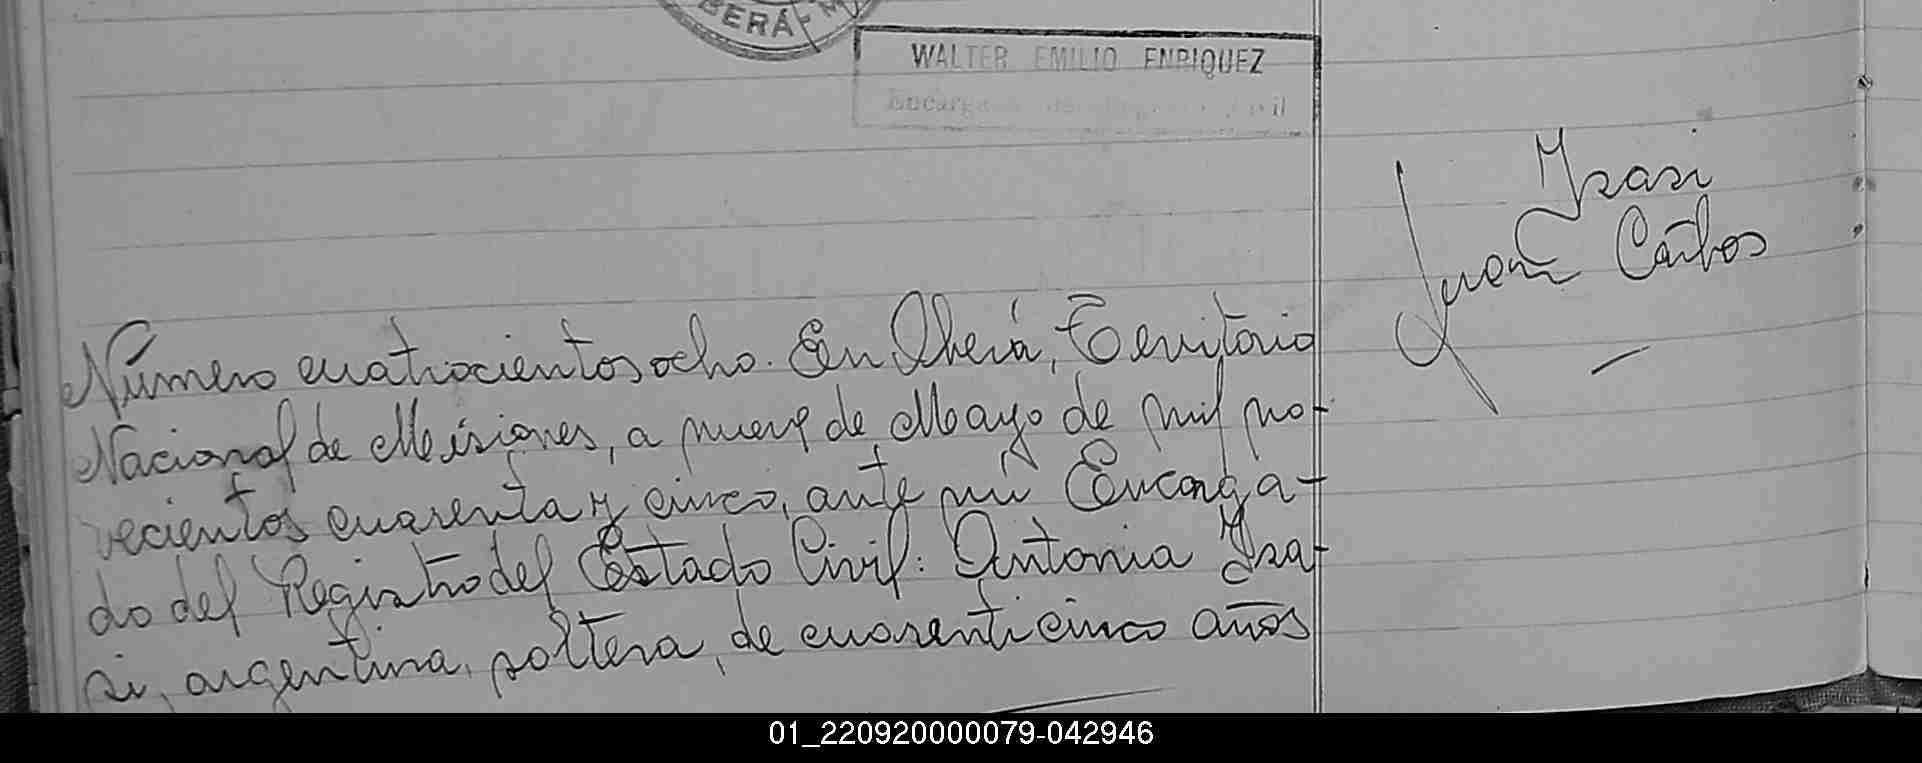 BERÁ-M
WALTER EMILIO ENRIQUEZ
Encarga
Ysasi
Juan Carlos
Número cuatrocientos ocho. En Oberá, Territorio
Nacional de Misiones, a nueve de Mayo de mil no-
vecientos cuarenta y cinco, ante mi Encarga-
do del Registro del Estado Civil: Antonia Ysa-
si, argentina, soltera, de cuarenticinco años
01_220920000079-042946